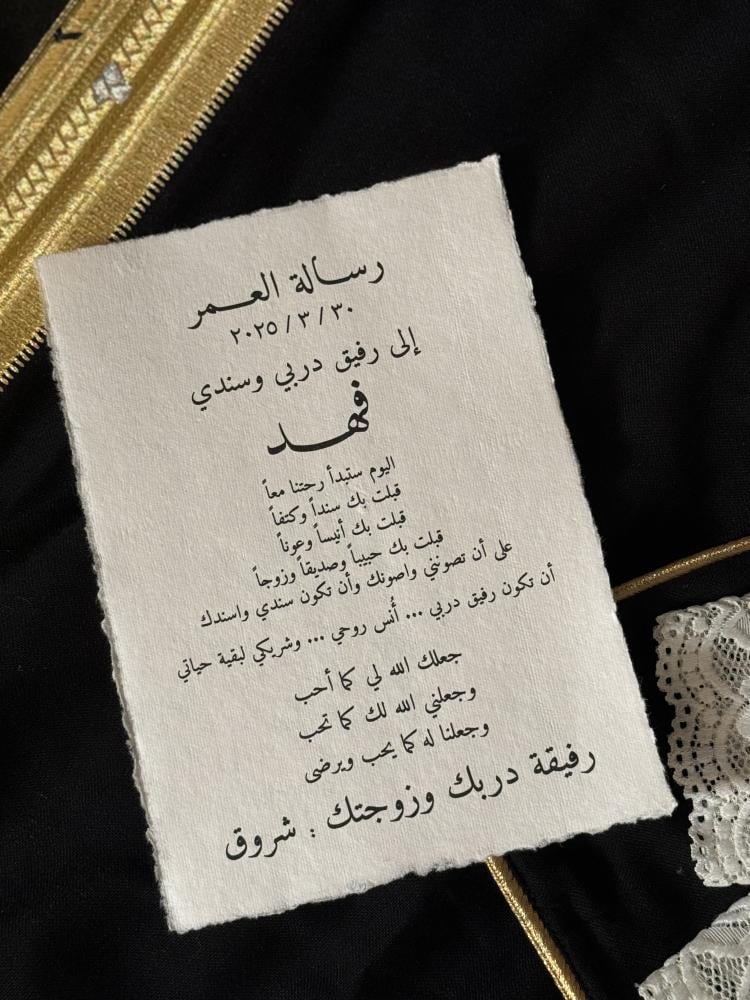 رسالة العمر
٣٠ / ٣ / ٢٠٢٥
إلى رفيق دربي وسندي
فهد
اليوم ستبدأ رحتنا معاً
قبلت بك سنداً وكتفاً
قبلت بك أنيساً وعوناً
قبلت بك حبيباً وصديقاً وزوجاً
على أن تصونني واصونك وأن تكون سندي واسندك
أن تكون رفيق دربي ... أُنس روحي ... وشريكي لبقية حياتي
جعلك الله لي كما أحب
وجعلني الله لك كما تحب
وجعلنا له كما يحب ويرضى
رفيقة دربك وزوجتك : شروق